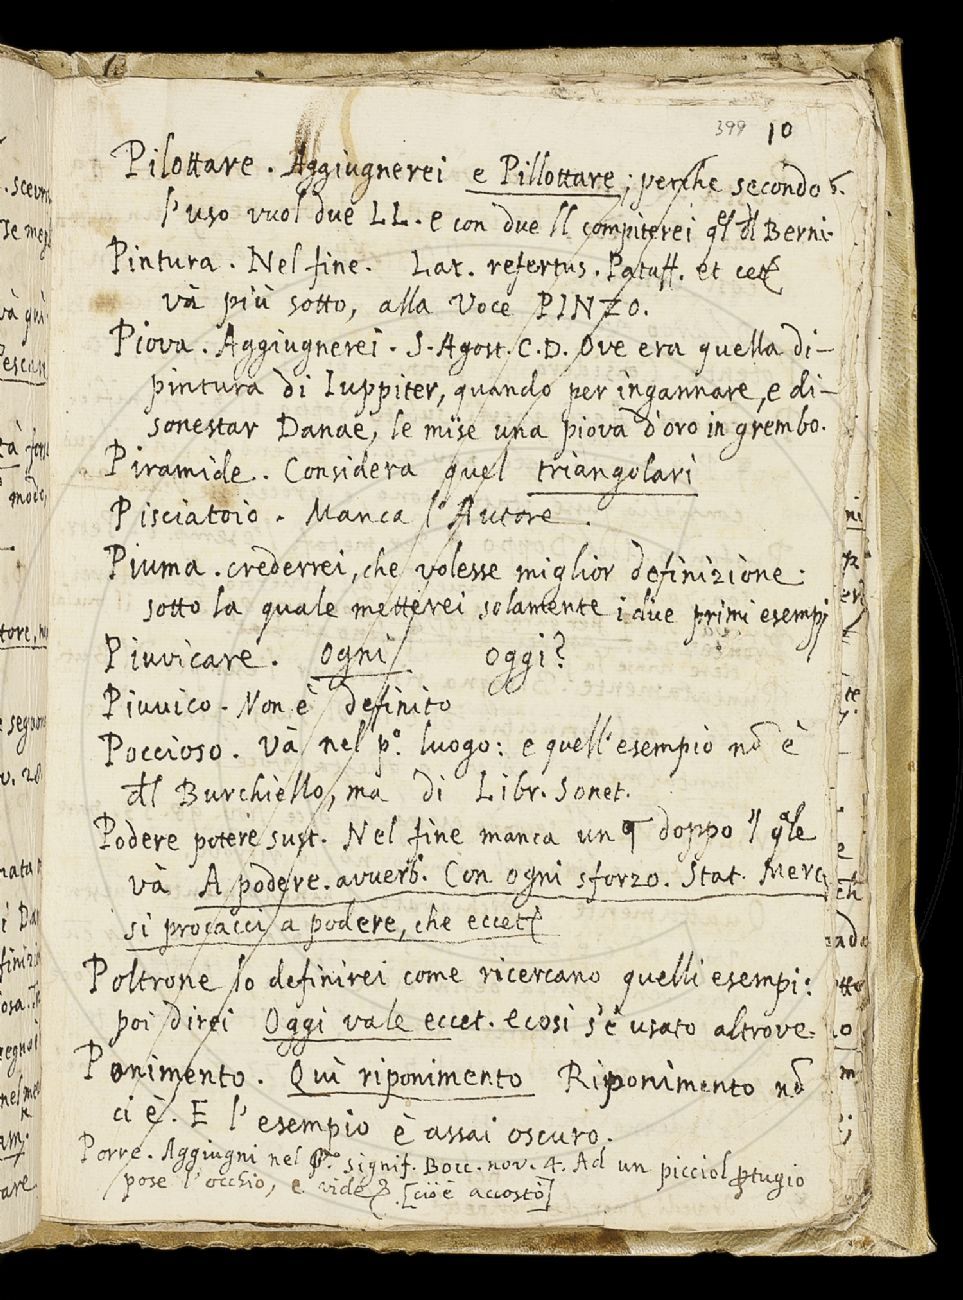 399 10
Pilottare. Aggiugnerei e Pillottare; perche secondo
l'uso vuol due LL. e con due ll compiterei ql dl Berni.
Pintura. Nel fine. Lat. refertus. Pataff. et cet
và più sotto, alla Voce PINZO.
Piova. Aggiugnerei. S. Agost. C. D. Ove era quella di-
pintura di Iuppiter, quando per ingannare, e di-
sonestar Danae, le mise una piova d'oro in grembo.
Piramide. Considera quel triangolari
Pisciatoio. Manca l'Autore.
Piuma. crederrei, che volesse miglior definizione:
sotto la quale metterei solamente i due primi esempj
Piuvicare. ogni oggi?
Piuvico. Non è definito
Poccioso. Và nel p.º luogo: e quell'esempio nō è
dl Burchiello, ma di Libr. Sonet.
Podere potere sust. Nel fine manca un ¶ doppo il qle
và A podere. avverb. Con ogni sforzo. Stat. Merc.
si procacci a podere, che eccet
Poltrone lo definirei come ricercano quelli esempi:
poi direi Oggi vale eccet. e cosi s'è usato altrove.
Ponimento. Quì riponimento Riponimento nō
ci è. E l'esempio è assai oscuro.
Porre. Aggiugni nel p.º signif. Bocc. nov. 4. Ad un picciol ptugio
pose l'occhio, e vide [cioè accostò]